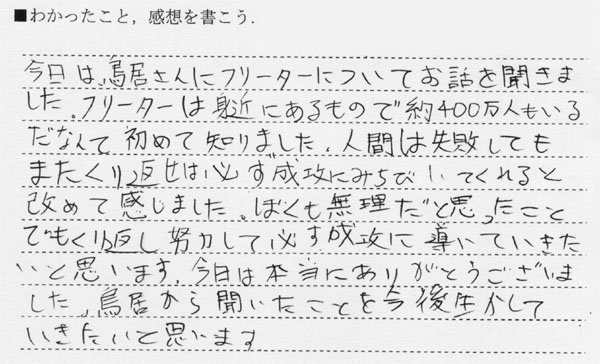 ■わかったこと，感想を書こう．
今日は、鳥居さんにフリーターについてお話を聞きま
した。フリーターは身近にあるもので約400万人もいる
だなんて初めて知りました。人間は失敗しても
またくり返せば必ず成攻にみちびいてくれると
改めて感じました。ぼくも無理だと思ったこと
でもくり返し努力して必ず成攻に導いていきた
いと思います。今日は本当にありがとうございま
した。鳥居から聞いたことを今後生かして
いきたいと思います